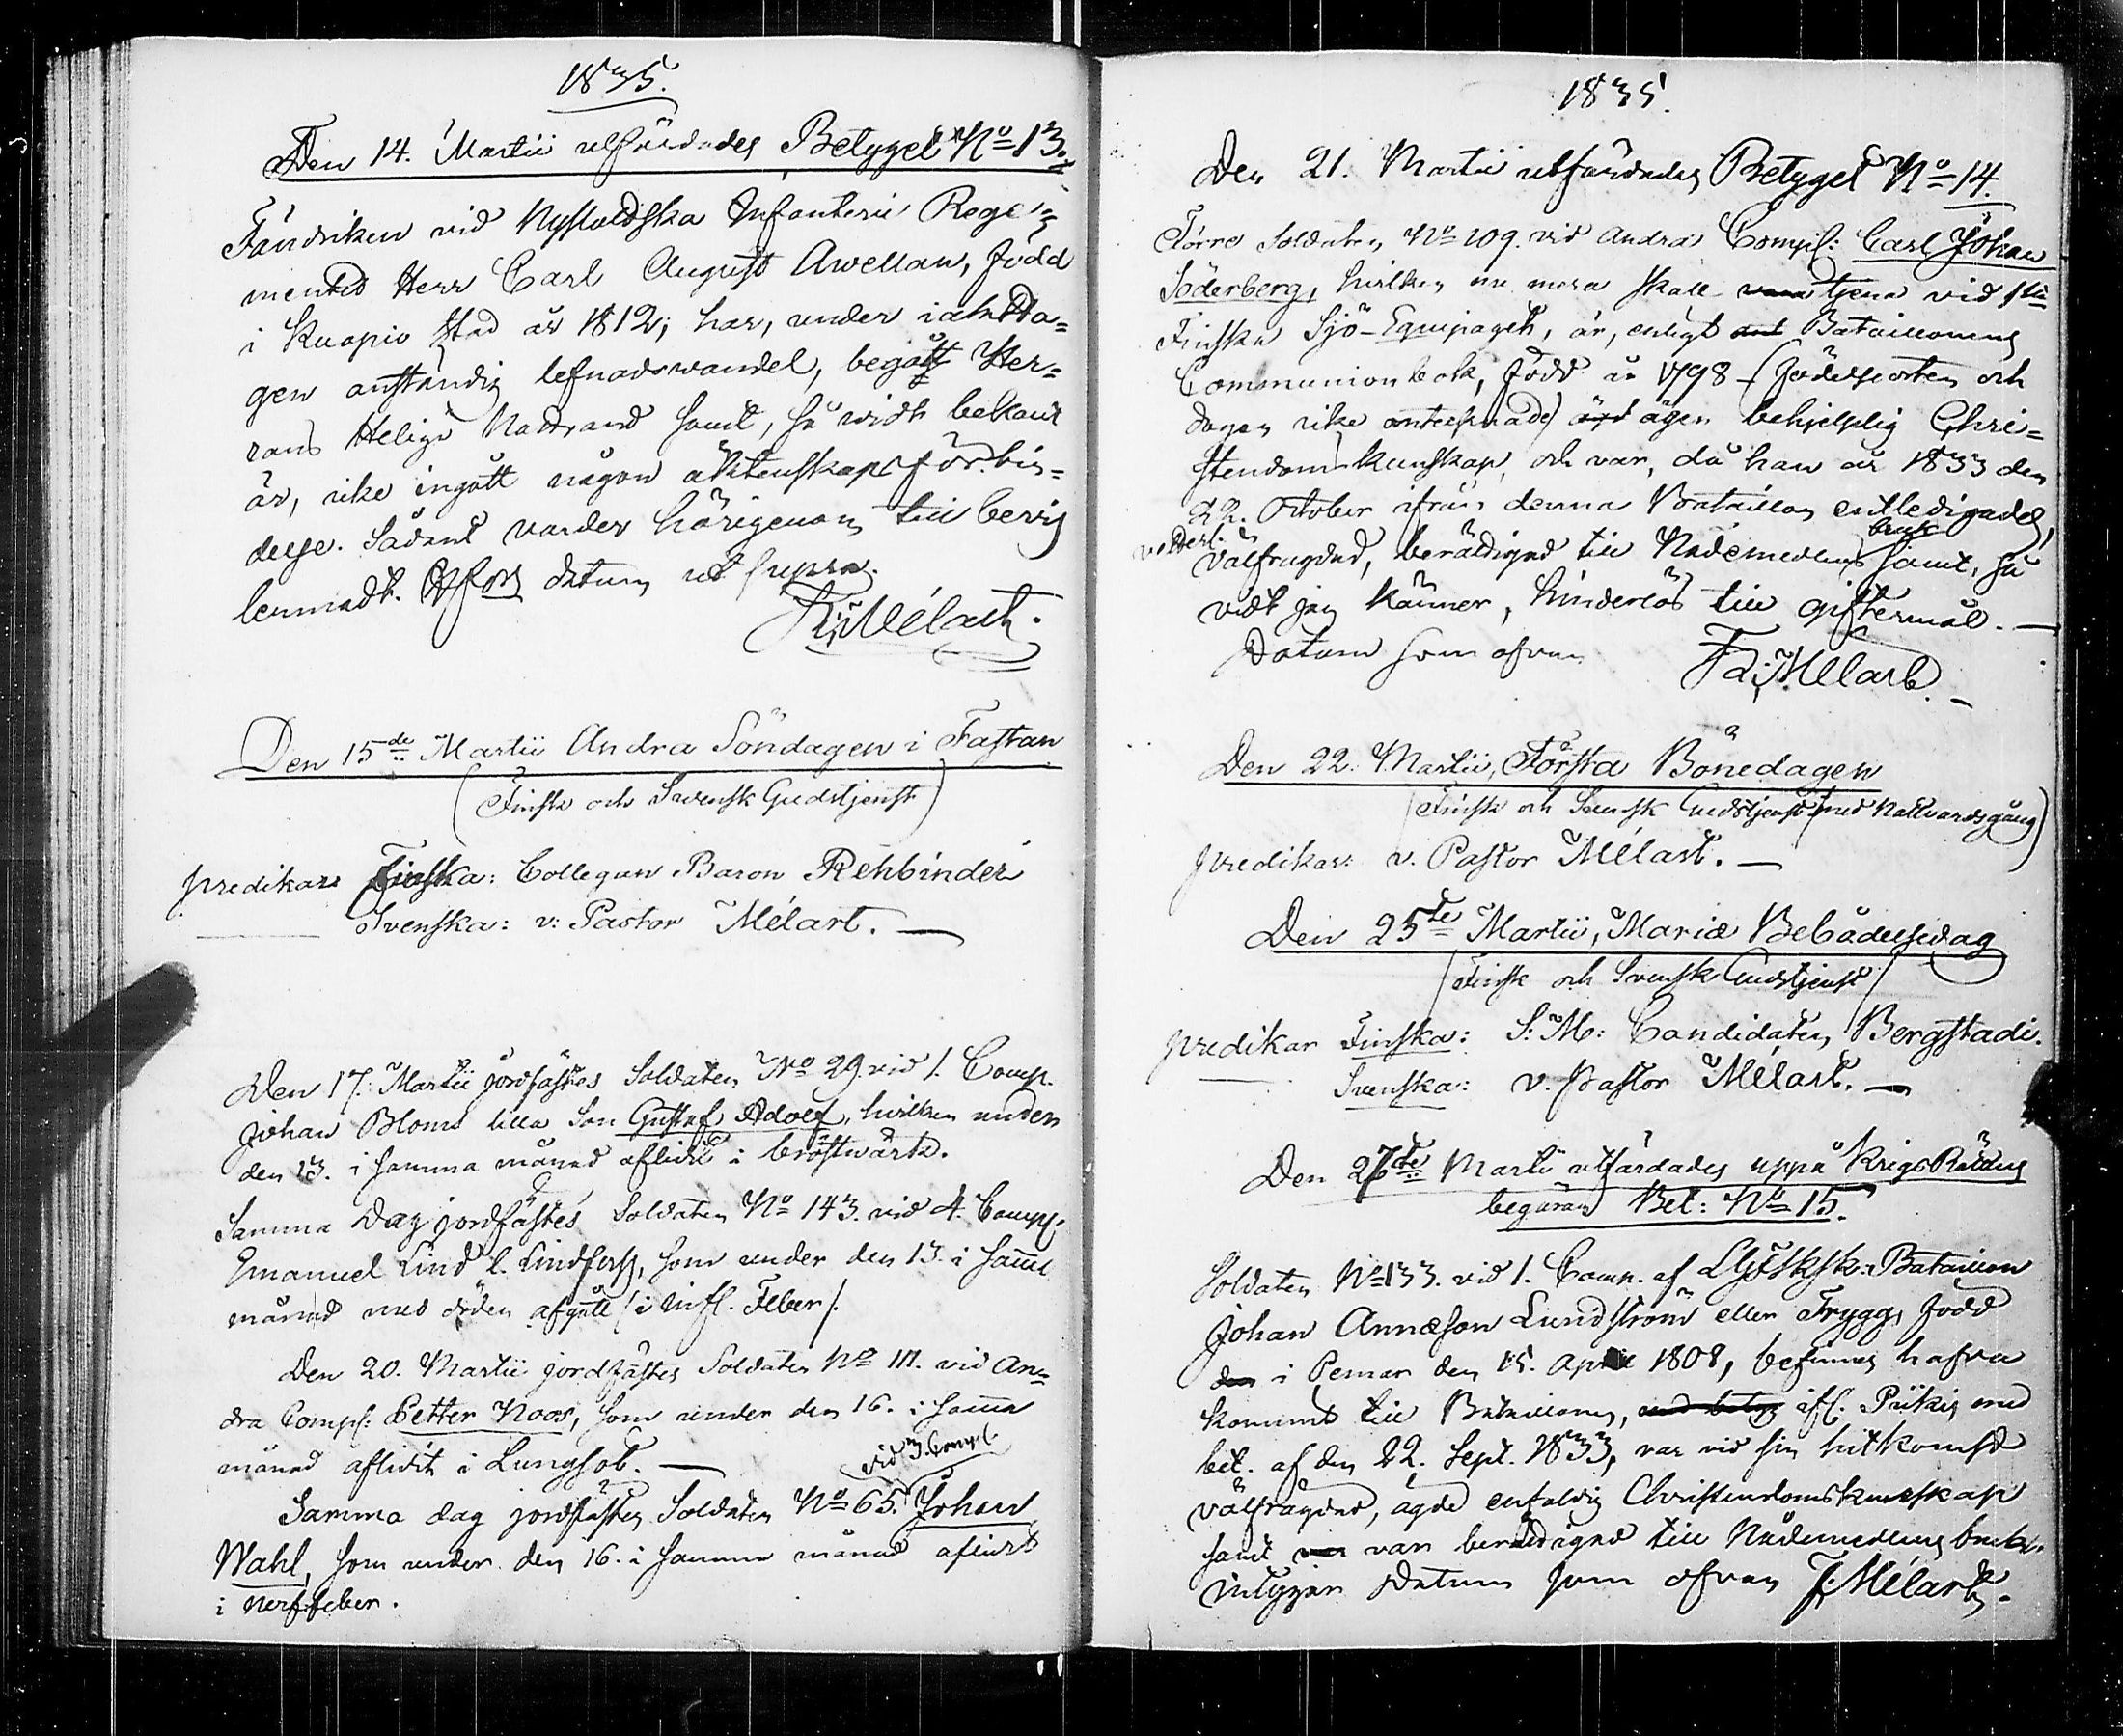 1835.
Den 14. Martii utfärdades Betyget No 13.
Fändriken vid Nystadska Infanterie Rege-
mentet Herr Carl August Awellan, född
i Kuopio stad år 1812; har, under iaktta-
gen anständig lefnadswandel, begått Her-
rans Heliga Nattvard samt, så widt bekant
är, icke ingått någon äktenskapsförbin-
delse. Sådant varder härigenom till bevis
lemnadt. Åbo datum ut supra.
Fr: Mélart.
Den 15de Martii Andra Söndagen i Fastan
(Finsk och Swensk Gudstjenst)
predikar Finska: Collegan Baron Rehbinder
Svenska: v: Pastor Mélart. —
Den 17. Martii jordfästes Soldaten No 29 vid 1. Comp.
Johan Bloms lilla Son Gustaf Adolf, hvilken under
den 13. i samma månad aflidit i bröstwärk.
Samma Dag jordfästes Soldaten No 143. vid 4. Comp:
Emanuel Lind l. Lindfors, som under den 13. i samma
månad med döden afgått (i Infl. Feber).
Den 20. Martii jordfästes Soldaten No 111. vid An-
dra Comp: Petter Noos, som under den 16. i samma
månad aflidit i Lungsot. —
vid 3. Comp.
Samma dag jordfästes Soldaten No 65. Johan
Wahl, som under den 16. i samma månad aflidit
i nerffeber.
1835.
Den 21. Martii utfärdades Betyget No 14.
Förre Soldaten No 109. vid Andra Comp: Carl Johan
Söderberg, hvilken nu mera skall vara tjena vid 1sta
Finska Sjö-Equipaget, är, enligt Bataillonens
Communionbok, född år 1798 (födelseorten och
dagen icke antecknade) äger behjelplig Chri-
stendomskunskap, och var, då han år 1833 den
22. October ifrån denna Bataillon entledigades,
bruk
välfrägdad, berättigad till Nådemedlens samt, så
vidt jag känner, hinderlös till giftermål. —
Datum som ofvan
Fr: Mélart.
Den 22. Martii, Första Bönedagen
(Finsk och Svensk Gudstjenst med Nattvardsgång)
predikar: v. Pastor Mélart. —
Den 25te Martii, Mariæ Bebådelsedag
(Finsk och Svensk Gudstjenst)
predikar Finska: S: M: Candidaten Bergstadi.
Svenska: v. Pastor Mélart. —
Den 27de Martii utfärdades uppå KrigsRättens
begäran Bet: No 15.
Soldaten No 133. vid 1. Comp. af Bataillon
Johan Annæson Lundström eller Trygg, född
den i Pemar den 15. April 1808, befinnes hafva
kommit till Bataillonen, med betyg ifr. Piikis med
bet. af den 22. Sept. 1833, var vid sin hitkomst
välfrägdad, ägde enfaldig Christendomskunskap
samt var berättigad till Nådemedlens bruk.
intygar Datum som ofvan F: Mélart.